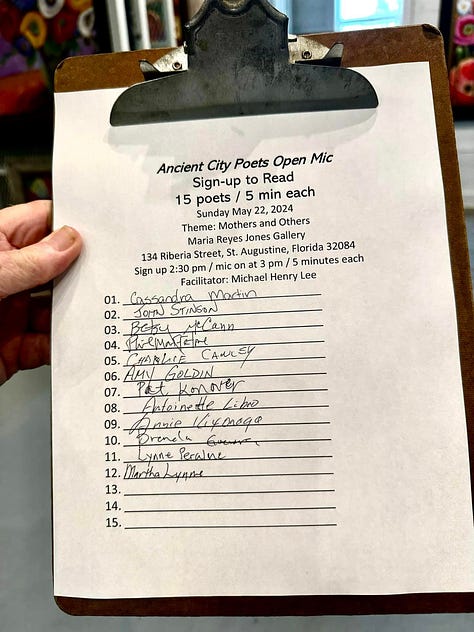 Ancient City Poets Open Mic
Sign-up to Read
15 poets / 5 min each
Sunday May 22, 2024
Theme: Mothers and Others
Maria Reyes Jones Gallery
134 Riberia Street, St. Augustine, Florida 32084
Sign up 2:30 pm / mic on at 3 pm / 5 minutes each
Facilitator: Michael Henry Lee
01. Cassandra Martin
02. JOHN STINSON
03. Betsy McCann
04.
05. CHARLIE CAWLEY
06. AMY GOLDIN
07. Pat Konover
08. Antoinette Libro
09. Annie
10.
11. Lynne
12. Martha Lynne
13.
14.
15.